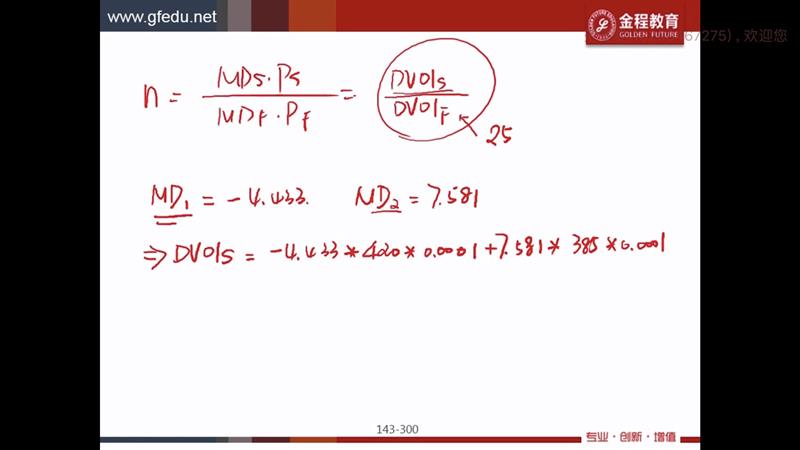 www.gfedu.net
金程教育
GOLDEN FUTURE
67275), 欢迎您
n = MDs·Ps / MDF·PF = DV01s / DV01F
25
MD1 = -4.433. MD2 = 7.581
⇒ DV01s = -4.433*420*0.0001+7.581*385*0.0001
143-300
专业·创新·增值